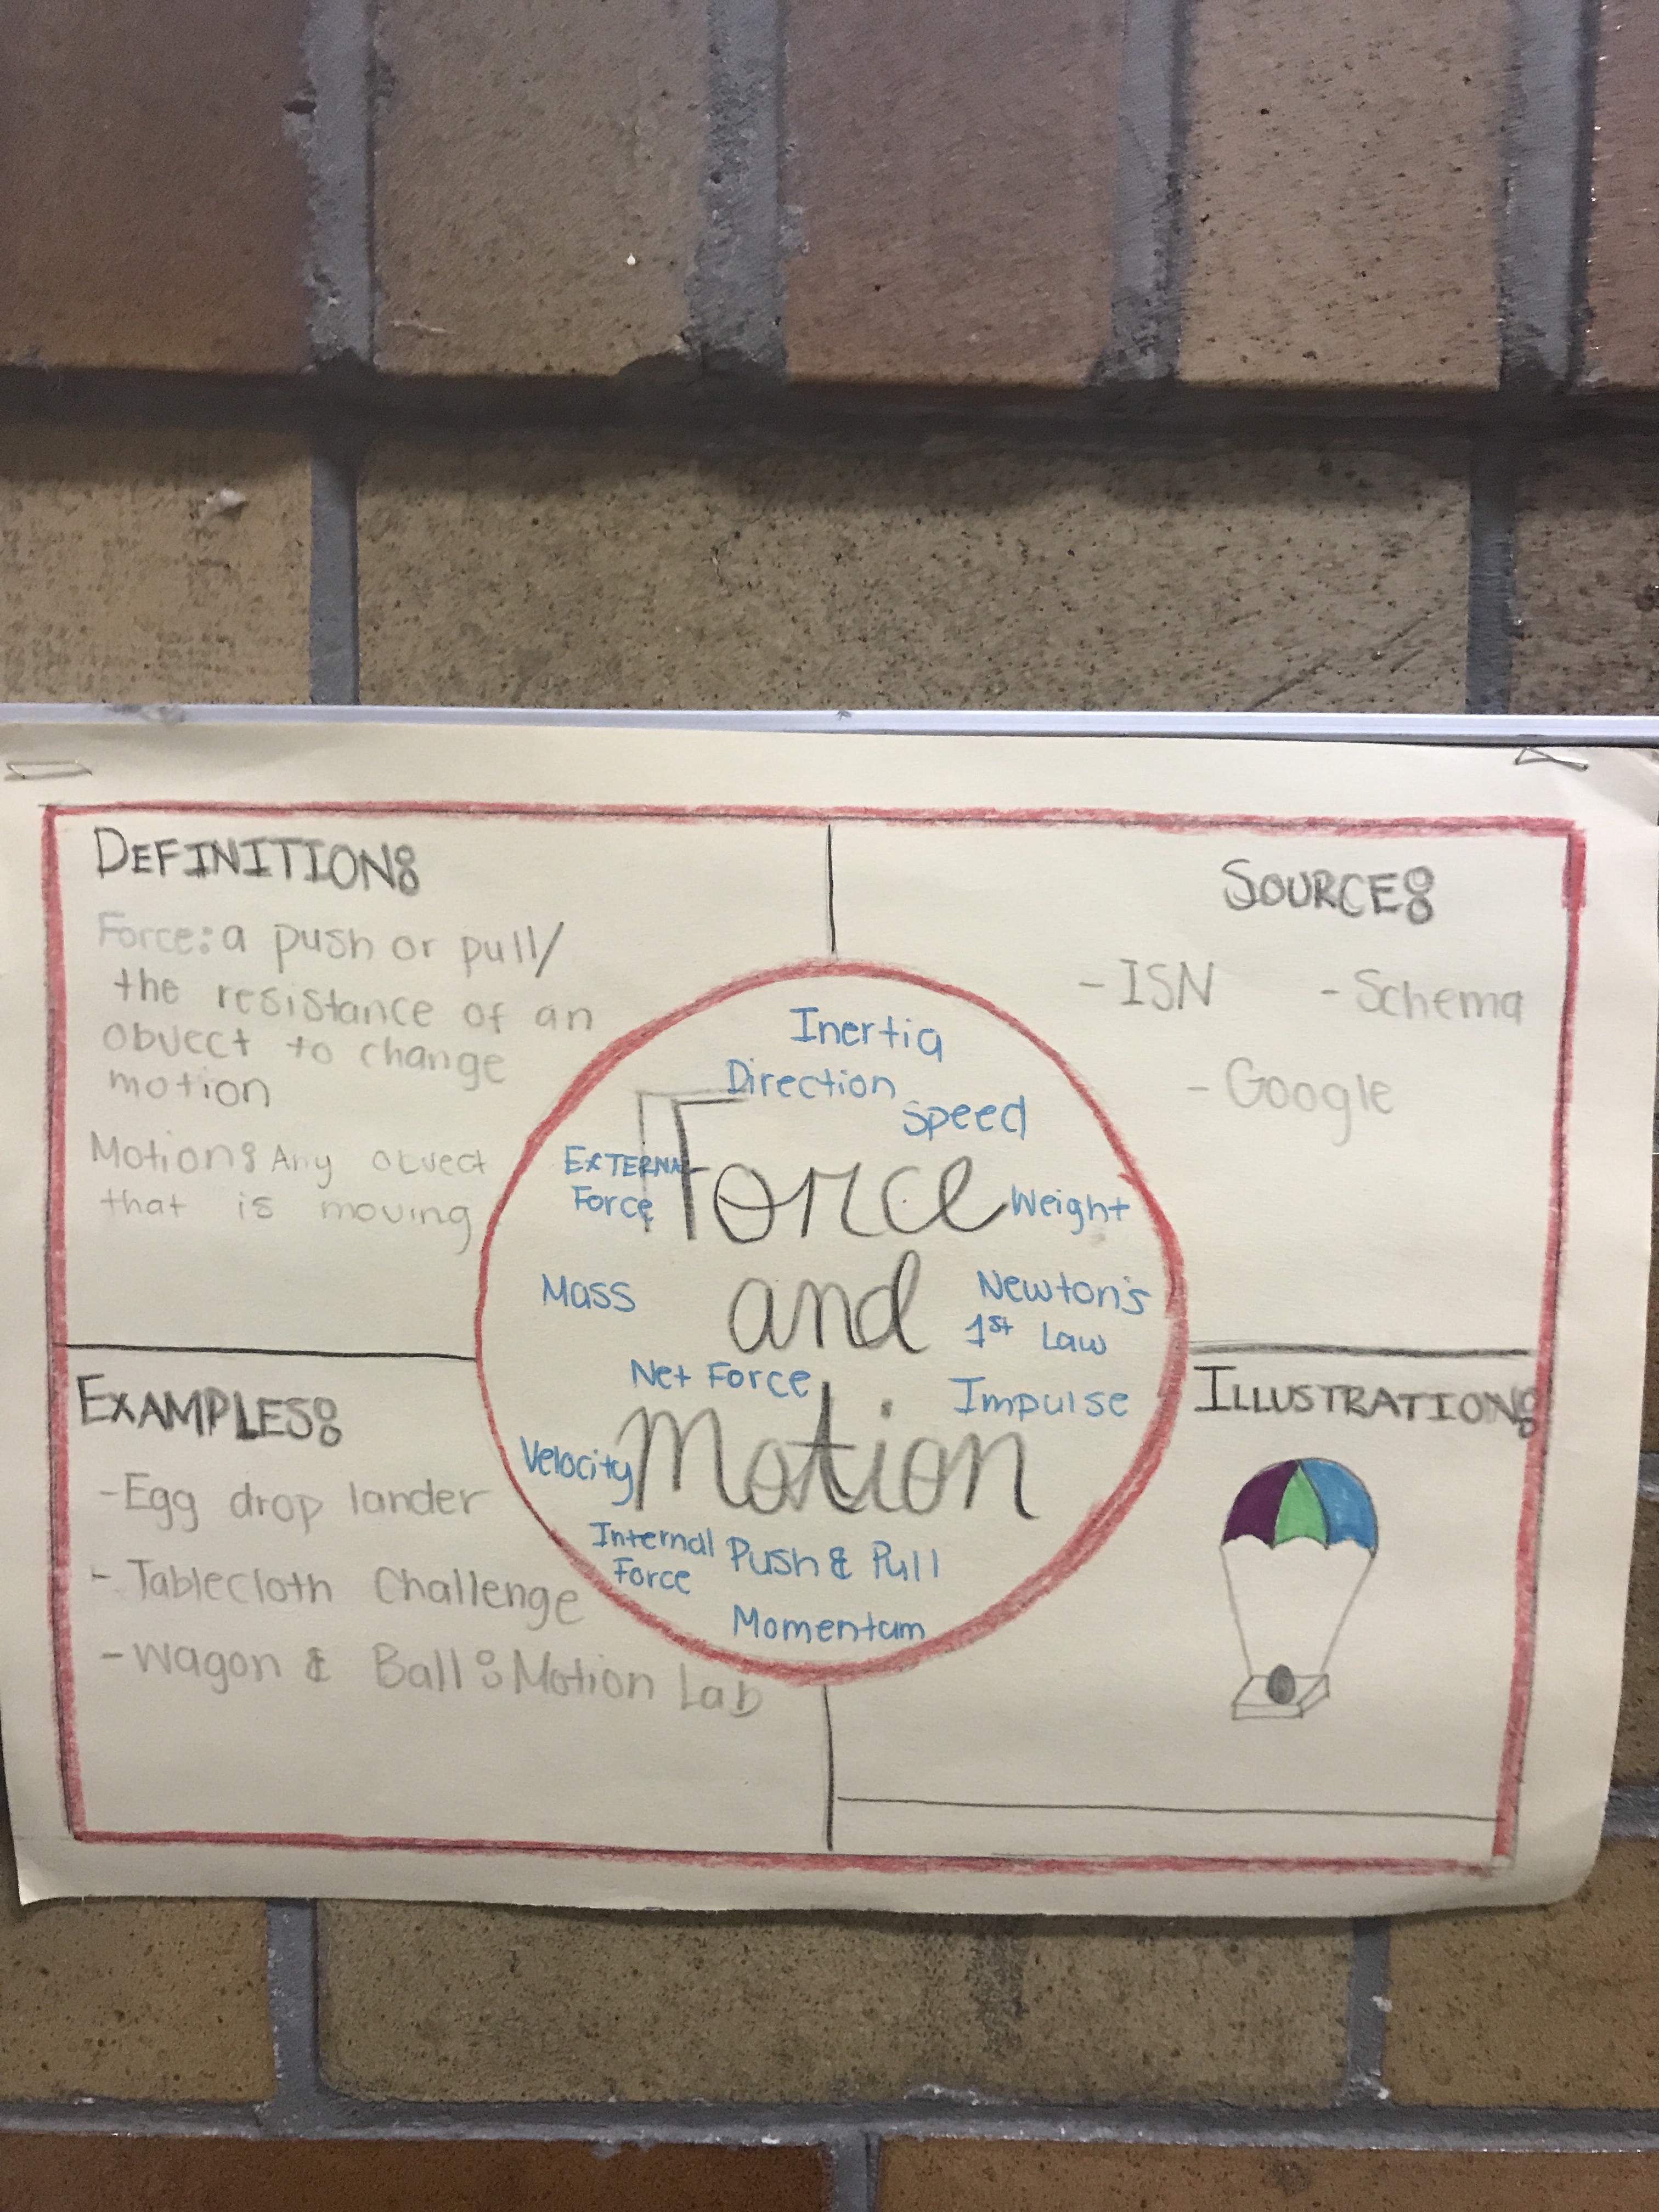 DEFINITION:
Force: a push or pull/
the resistance of an
obvect to change
motion
Motion: Any obvect
that is moving
SOURCE:
- ISN - Schema
- Google
Inertia
Direction
Speed
EXTERNAL
Force
Weight
Force
and
Motion
Mass
Newton's
1st Law
Net Force
Impulse
Velocity
Internal
Force
Push & Pull
Momentum
EXAMPLES:
- Egg drop lander
- Tablecloth Challenge
- Wagon & Ball: Motion Lab
ILLUSTRATION: